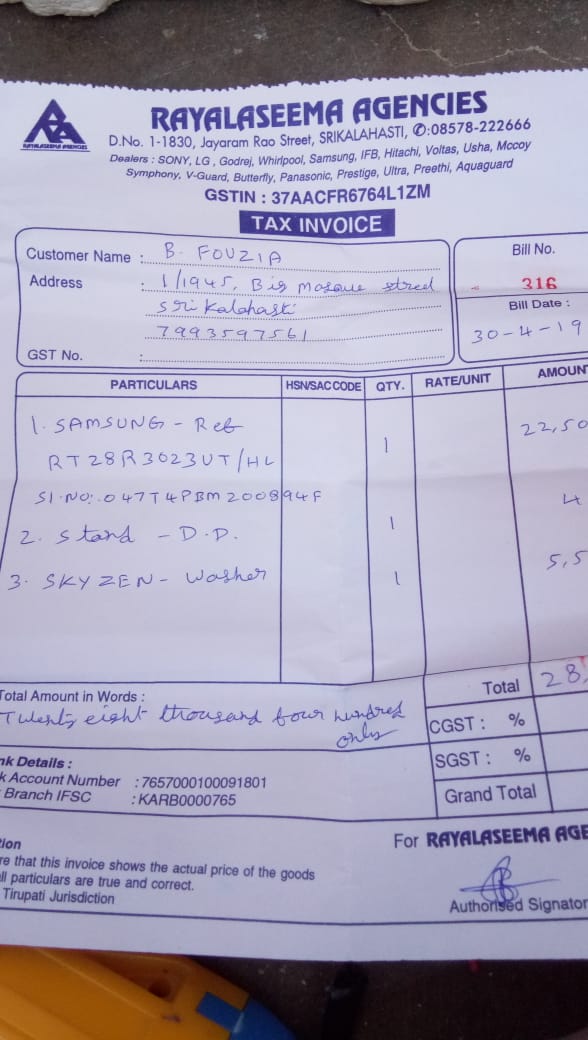 RAYALASEEMA AGENCIES
RAYALASEEMA AGENCIES
D.No. 1-1830, Jayaram Rao Street, SRIKALAHASTI, ✆:08578-222666
Dealers : SONY, LG , Godrej, Whirlpool, Samsung, IFB, Hitachi, Voltas, Usha, Mccoy
Symphony, V-Guard, Butterfly, Panasonic, Prestige, Ultra, Preethi, Aquaguard
GSTIN : 37AACFR6764L1ZM
TAX INVOICE
Customer Name : B. FOUZIA
Address : 1/1945, Big Mosque street
Sri Kalahasti
7993597561
GST No. :
Bill No.
316
Bill Date :
30-4-19
PARTICULARS HSN/SAC CODE QTY. RATE/UNIT AMOUN
1. SAMSUNG - Ref 1 22,50
RT28R3023UT/HL
Sl.No:.047T4PBM200894F
2. Stand - D.D. 1 4
3. SKYZEN - Washer 1 5,5
Total Amount in Words :
Twenty eight thousand four hundred
only
Total 28,
CGST : %
SGST : %
Grand Total
nk Details :
k Account Number : 7657000100091801
Branch IFSC : KARB0000765
tion
re that this invoice shows the actual price of the goods
ll particulars are true and correct.
Tirupati Jurisdiction
For RAYALASEEMA AGE
Authorised Signator